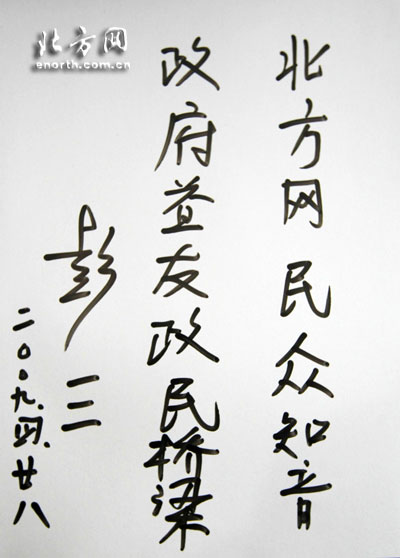 北方网
enorth.com.cn
北方网民众知音
政府益友政民桥梁
彭三
二〇〇九.四.廿八